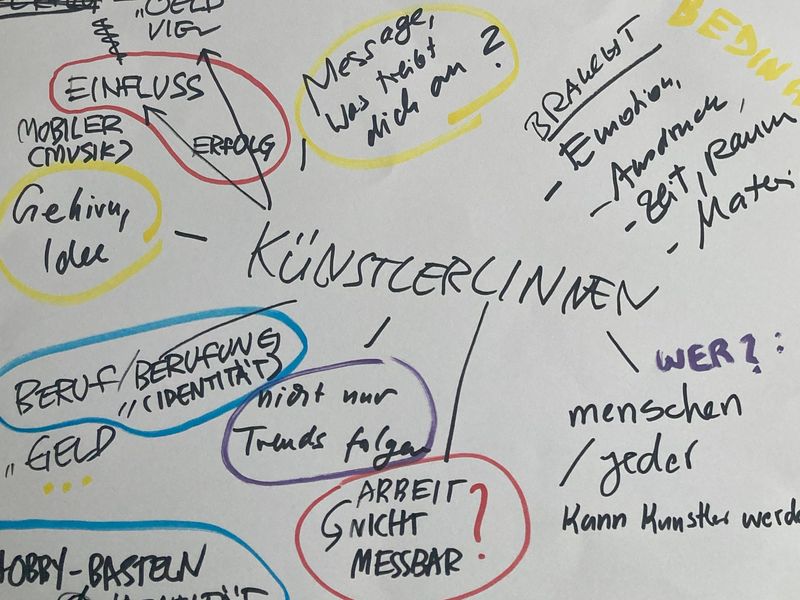 „GELD
VIEL
EINFLUSS
ERFOLG
MOBILER
(MUSIK)
Message,
was treibt
dich an?
BRAUCHT
- Emotion,
- Ausdruck,
- Zeit, Raum
- Materi
BEDIN
Gehirn,
Idee
KÜNSTLERINNEN
BERUF/BERUFUNG
„(IDENTITÄT)
„GELD
...
nicht nur
Trends folgen
WER?:
menschen
/jeder
Kann Kunstler werde
ARBEIT
NICHT
MESSBAR ?
HOBBY-BASTELN